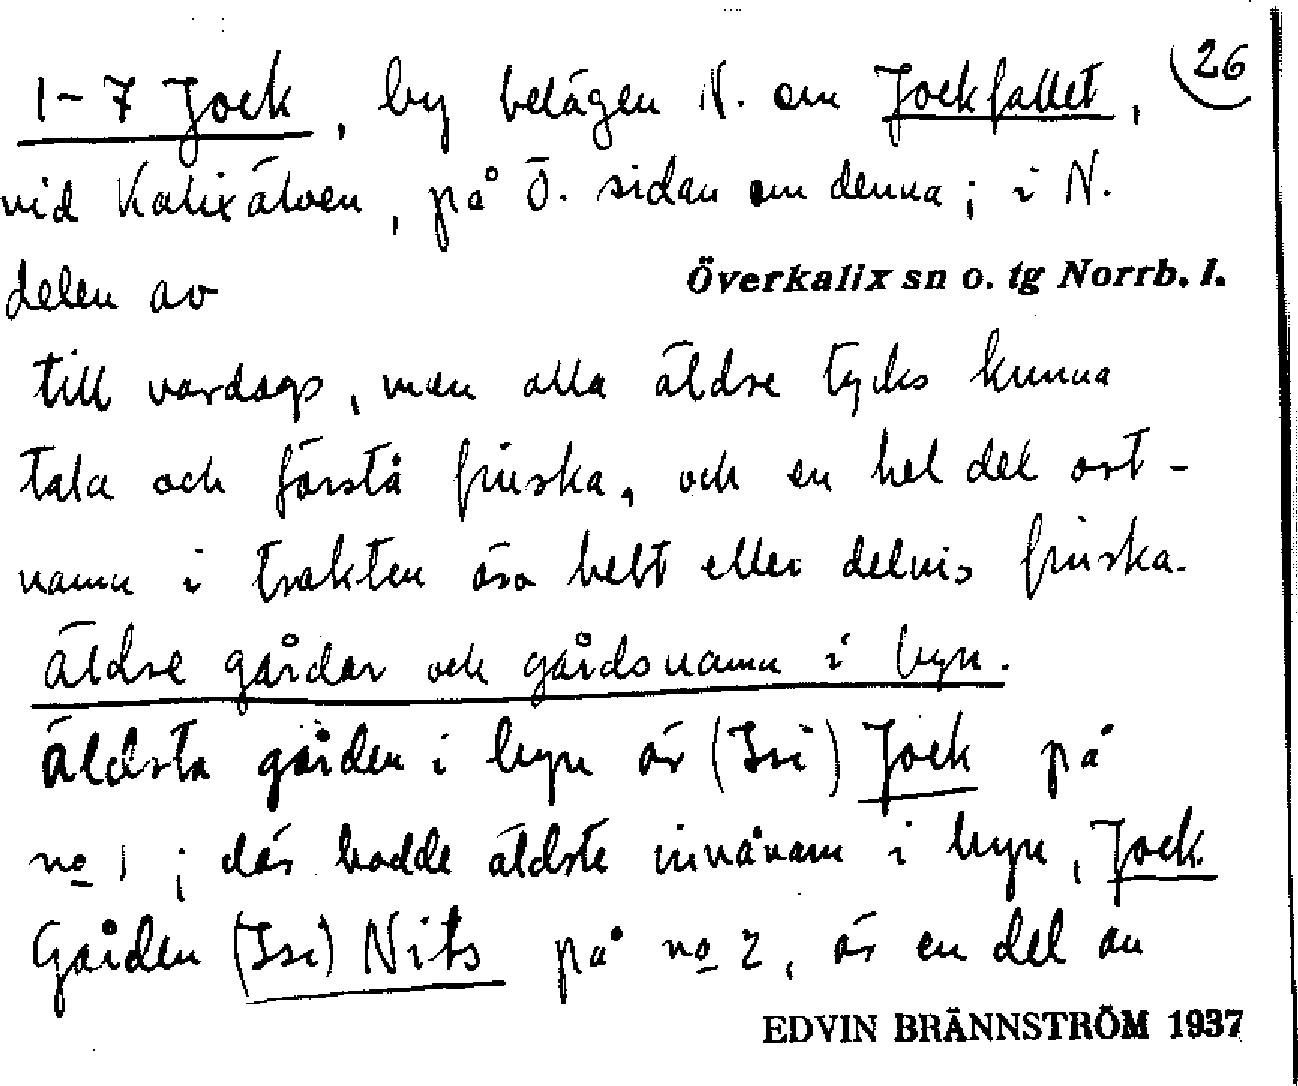 26
1-7 Jock, by belägen N. om Jockfallet,
vid Kalixälven, på Ö. sidan om denna; i N.
delen av Överkalix sn o. tg Norrb. l.
till vardags, men alla äldre tycks kunna
tala och förstå finska, och en hel del ort-
namn i trakten äro helt eller delvis finska.
Äldre gårdar och gårdsnamn i byn.
Äldsta gården i byn är (Isi) Jock på
no 1; där bodde äldste invånare i byn, Jock.
Gården (Isi) Nits på no 2, är en del av
EDVIN BRÄNNSTRÖM 1937